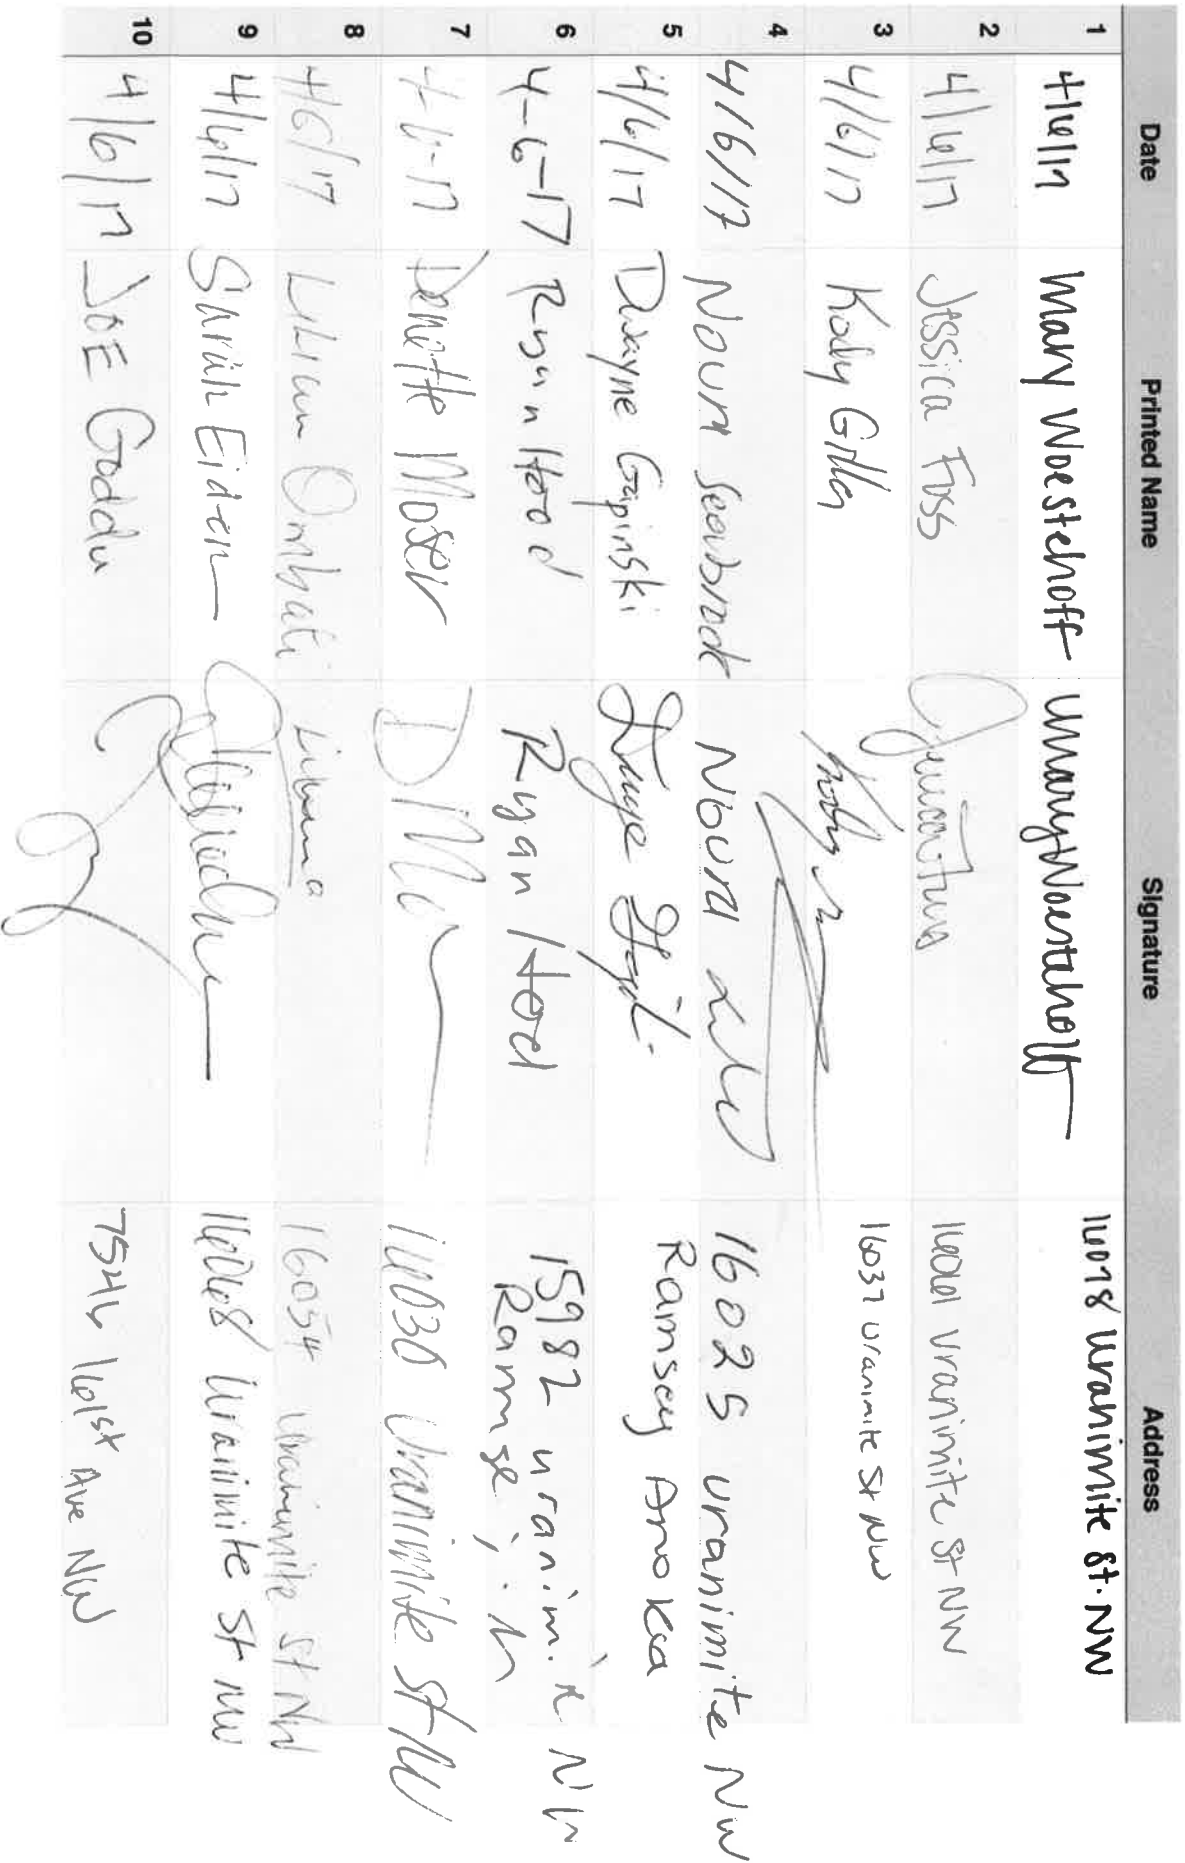 Date Printed Name Signature Address
1 4/6/17 Mary Woestehoff Mary Woestehoff 16078 Uranimite St. NW
2 4/6/17 Jessica Fuss Uranimite St NW
3 4/6/17 Kody 16037 Uranimite St NW
4 4/6/17 Noura Seabrook Noura 16025 Uranimite NW
Ramsey Anoka
5 4/6/17 Dwayne Gapinski Dwayne
6 4-6-17 Ryan Hood Ryan Hood 15982 NW
7 4-6-17 Danette Moser D Mo 16030 Uranimite St NW
8 4/6/17 Lilian Ombati 16054 Uranimite St NW
9 4/6/17 Sarah Eiden 16068 Uranimite St NW
10 4/6/17 JOE Goddu 7546 161st Ave NW